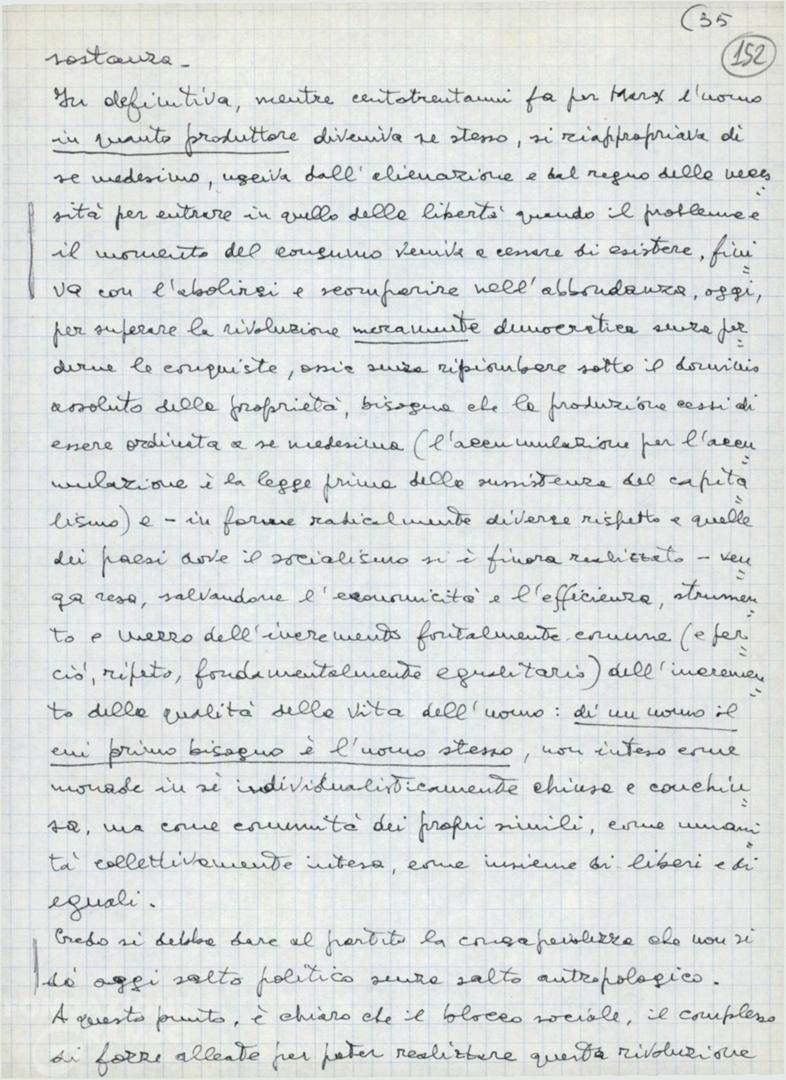 (35
152
sostanza -
In definitiva, mentre centotrentanni fa per Marx l'uomo
in quanto produttore diveniva se stesso, si riappropriava di
se medesimo, usciva dall'alienazione e dal regno della neces=
sità per entrare in quello della libertà quando il problema e
il momento del consumo veniva a cessare di esistere, fini=
va con l'abolirsi e scomparire nell'abbondanza, oggi,
per superare la rivoluzione meramente democratica senza per=
derne le conquiste, ossia senza ripiombare sotto il dominio
assoluto della proprietà, bisogna che la produzione cessi di
essere ordinata a se medesima (l'accumulazione per l'accu=
mulazione è la legge prima della sussistenza del capita=
lismo) e - in forme radicalmente diverse rispetto a quelle
dei paesi dove il socialismo si è finora realizzato - ven=
ga resa, salvandone l'economicità e l'efficienza, strumen=
to e mezzo dell'incremento fontalmente comune (e per=
ciò, ripeto, fondamentalmente egualitario) dell'incremen=
to della qualità della vita dell'uomo: di un uomo il
cui primo bisogno è l'uomo stesso, non inteso come
monade in sè individualisticamente chiusa e conchiu=
sa, ma come comunità dei propri simili, come umani=
tà collettivamente intesa, come insieme di liberi e di
eguali.
Credo si debba dare al partito la consapevolezza che non si
dà oggi salto politico senza salto antropologico.
A questo punto, è chiaro che il blocco sociale, il complesso
di forze alleate per poter realizzare questa rivoluzione